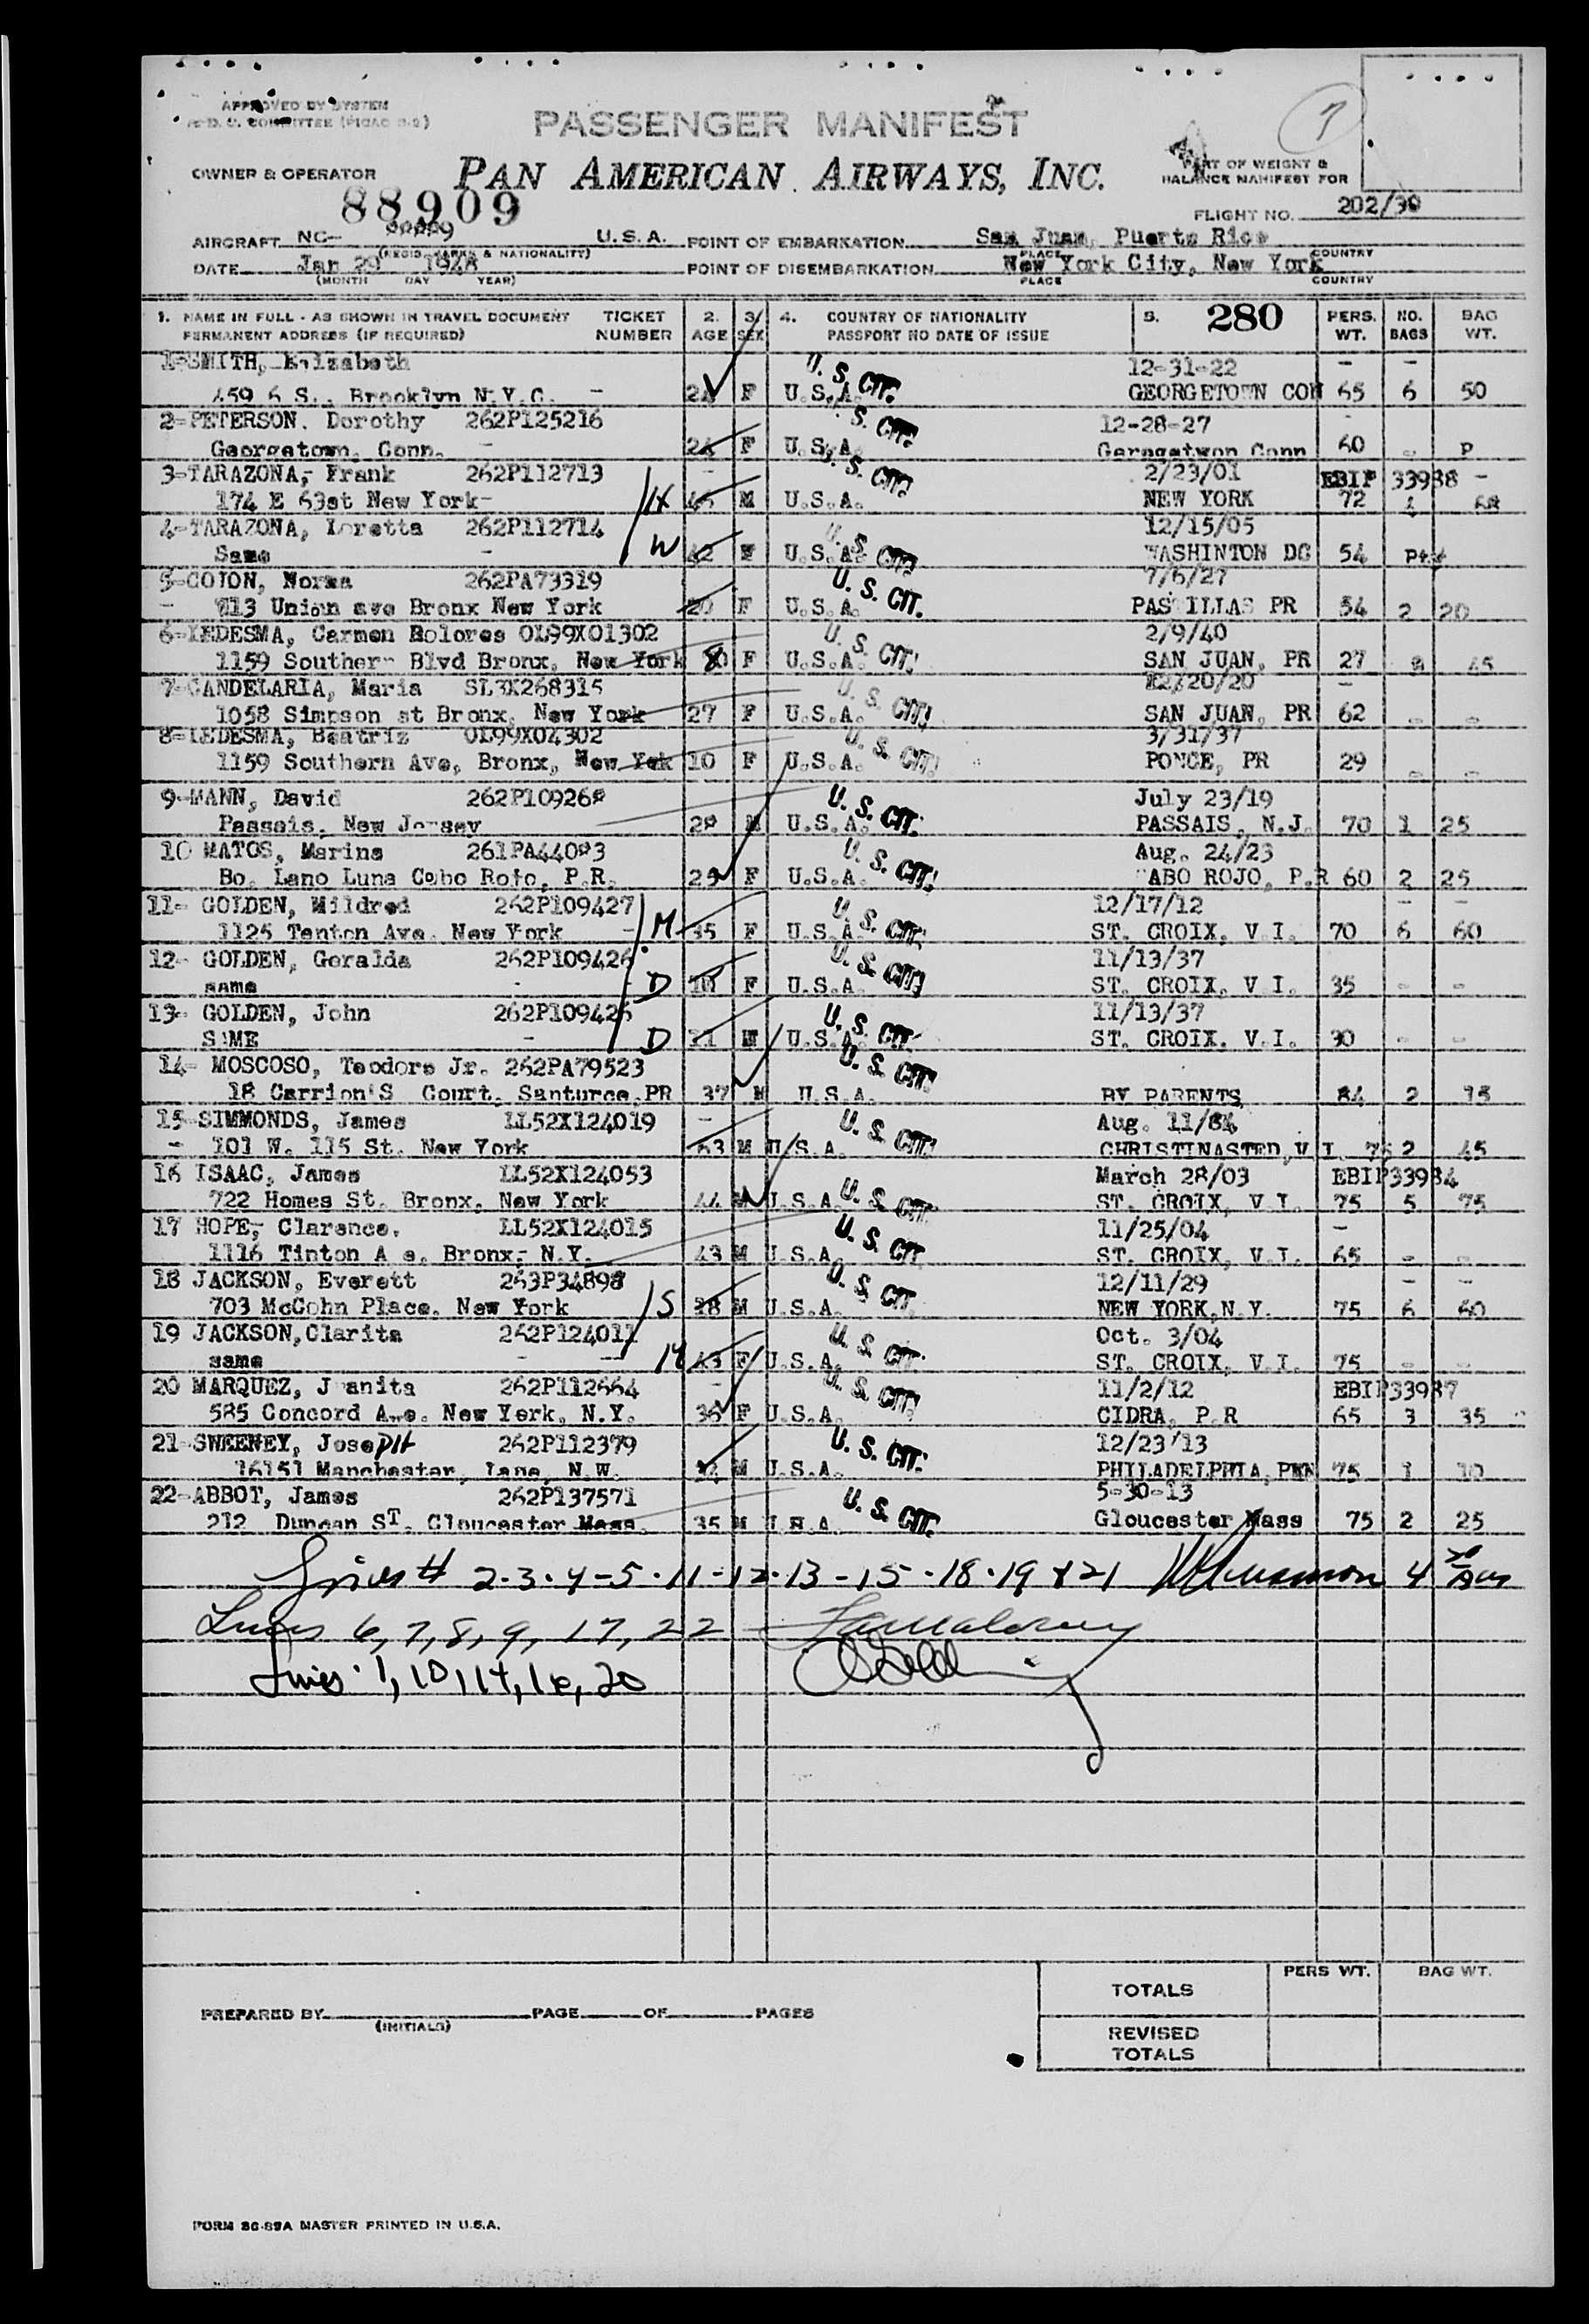 APPROVED BY SYSTEM
PASSENGER MANIFEST
7
OWNER & OPERATOR PAN AMERICAN AIRWAYS, INC. PART OF WEIGHT &
BALANCE MANIFEST FOR
88909
FLIGHT NO. 202/30
AIRCRAFT NC- U.S.A. POINT OF EMBARKATION San Juan, Puerto Rico
(REGIS. MARKS & NATIONALITY) PLACE COUNTRY
DATE Jan 29 1948 POINT OF DISEMBARKATION New York City, New York
(MONTH DAY YEAR) PLACE COUNTRY
1. NAME IN FULL - AS SHOWN IN TRAVEL DOCUMENT TICKET 2. 3. 4. COUNTRY OF NATIONALITY 5. 280 PERS. NO. BAG
PERMANENT ADDRESS (IF REQUIRED) NUMBER AGE SEX PASSPORT NO DATE OF ISSUE WT. BAGS WT.
1-SMITH, Elizabeth U. S. CIT. 12-31-22 - -
459 6 S., Brooklyn N.Y.C. - F U.S.A. GEORGETOWN CON 65 6 50
2-PETERSON. Dorothy 262P125216 S. CIT. 12-28-27
Georgetown. Conn. - F U.S.A. Conn 60 P
3-TARAZONA, Frank 262P112713 S. CIT. 2/23/01 EBIP 33988 -
174 E 63st New York- H M U.S.A. NEW YORK 72
4-TARAZONA, Loretta 262P112714 U. S. CIT. 12/15/05
Same - W 42 F U.S.A. WASHINTON DC 54
5-COTON, Norma 262PA73319 U. S. CIT. 7/6/27
- 713 Union ave Bronx New York 20 F U.S.A. PAS ILLAS PR 54 2 20
6-LEDESMA, Carmen Dolores OL99X01302 U. S. CIT. 2/9/40
1159 Southern Blvd Bronx, New York 8 F U.S.A. SAN JUAN, PR 27 45
7-CANDELARIA, Maria SL3X268315 U. S. CIT. 12/20/20 -
1058 Simpson st Bronx, New York 27 F U.S.A. SAN JUAN, PR 62 - -
8-LEDESMA, Beatriz OL99X04302 U. S. CIT. 3/31/37
1159 Southern Ave, Bronx, New Yok 10 F U.S.A. PONCE, PR 29 - -
9-MANN, David U. S. CIT. July 23/19
Passais, New Jersey M U.S.A. PASSAIS, N.J. 70 1 25
10 MATOS, Marina U. S. CIT. Aug. 24/23
Bo. Lano Luna Cabo Rojo, P.R. F U.S.A. ABO ROJO, P.R 60 2 25
11- GOLDEN, Mildred 262P109427 U. S. CIT. 12/17/12 - -
1125 Tenton Ave. New York - M 35 F U.S.A. ST. CROIX, V.I. 70 6 60
12- GOLDEN, Geralda 262P109426 U. S. CIT. 11/13/37
same - D F U.S.A. ST. CROIX, V.I. 35 - -
13- GOLDEN, John U. S. CIT. 11/13/37
SAME - D 11 M U.S.A. ST. CROIX. V.I. 30 - -
14- MOSCOSO, Teodoro Jr. 262PA79523 U. S. CIT.
18 Carrion'S Court. Santurce,PR 37 M U.S.A. BY PARENTS 84 2 15
15-SIMMONDS, James LL52X124019 - U. S. CIT. Aug. 11/84
- 101 W. 115 St. New York 63 M U.S.A. CHRISTINASTED,V.I. 75 2 45
16 ISAAC, James LL52X124053 March 28/03 EBIP33984
722 Homes St. Bronx, New York 44 M U.S.A. U. S. CIT. ST. CROIX, V.I. 75 5 75
17 HOPE, Clarence. LL52X124015 U. S. CIT. 11/25/04 -
1116 Tinton A e. Bronx, N.Y. 43 M U.S.A. ST. CROIX, V.I. 65 - -
18 JACKSON, Everett 263P34898 U. S. CIT. 12/11/29 - -
703 McCohn Place. New York S 18 M U.S.A. NEW YORK,N.Y. 75 6 60
19 JACKSON,Clarita 262P124011 U. S. CIT. Oct. 3/04
same - - M 43 F U.S.A. ST. CROIX, V.I. 75 - -
20 MARQUEZ, J anita 262P112664 - U. S. CIT. 11/2/12 EBIP33987
585 Concord Ave. New York, N.Y. 35 F U.S.A. CIDRA, P.R 65 3 35
21-SWEENEY, JosePH 262P112379 U. S. CIT. 12/23/13
16151 Manchester, Lane, N.W. 34 M U.S.A. PHILADELPHIA,PEN 75 1 10
22-ABBOT, James 262P137571 U. S. CIT. 5-30-13
212 Duncan ST. Gloucester Mass. 35 M U.S.A. Gloucester Mass 75 2 25
Lines # 2-3-4-5-11-12-13-15-18-19 & 21
Lines 6, 7, 8, 9, 17, 22
Lines 1, 10, 14, 16, 20
PERS WT. BAG WT.
TOTALS
PREPARED BY PAGE OF PAGES
(INITIALS)
REVISED
TOTALS
FORM 86-89A MASTER PRINTED IN U.S.A.